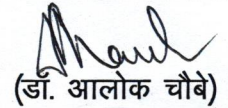 (डॉ. आलोक चौबे)